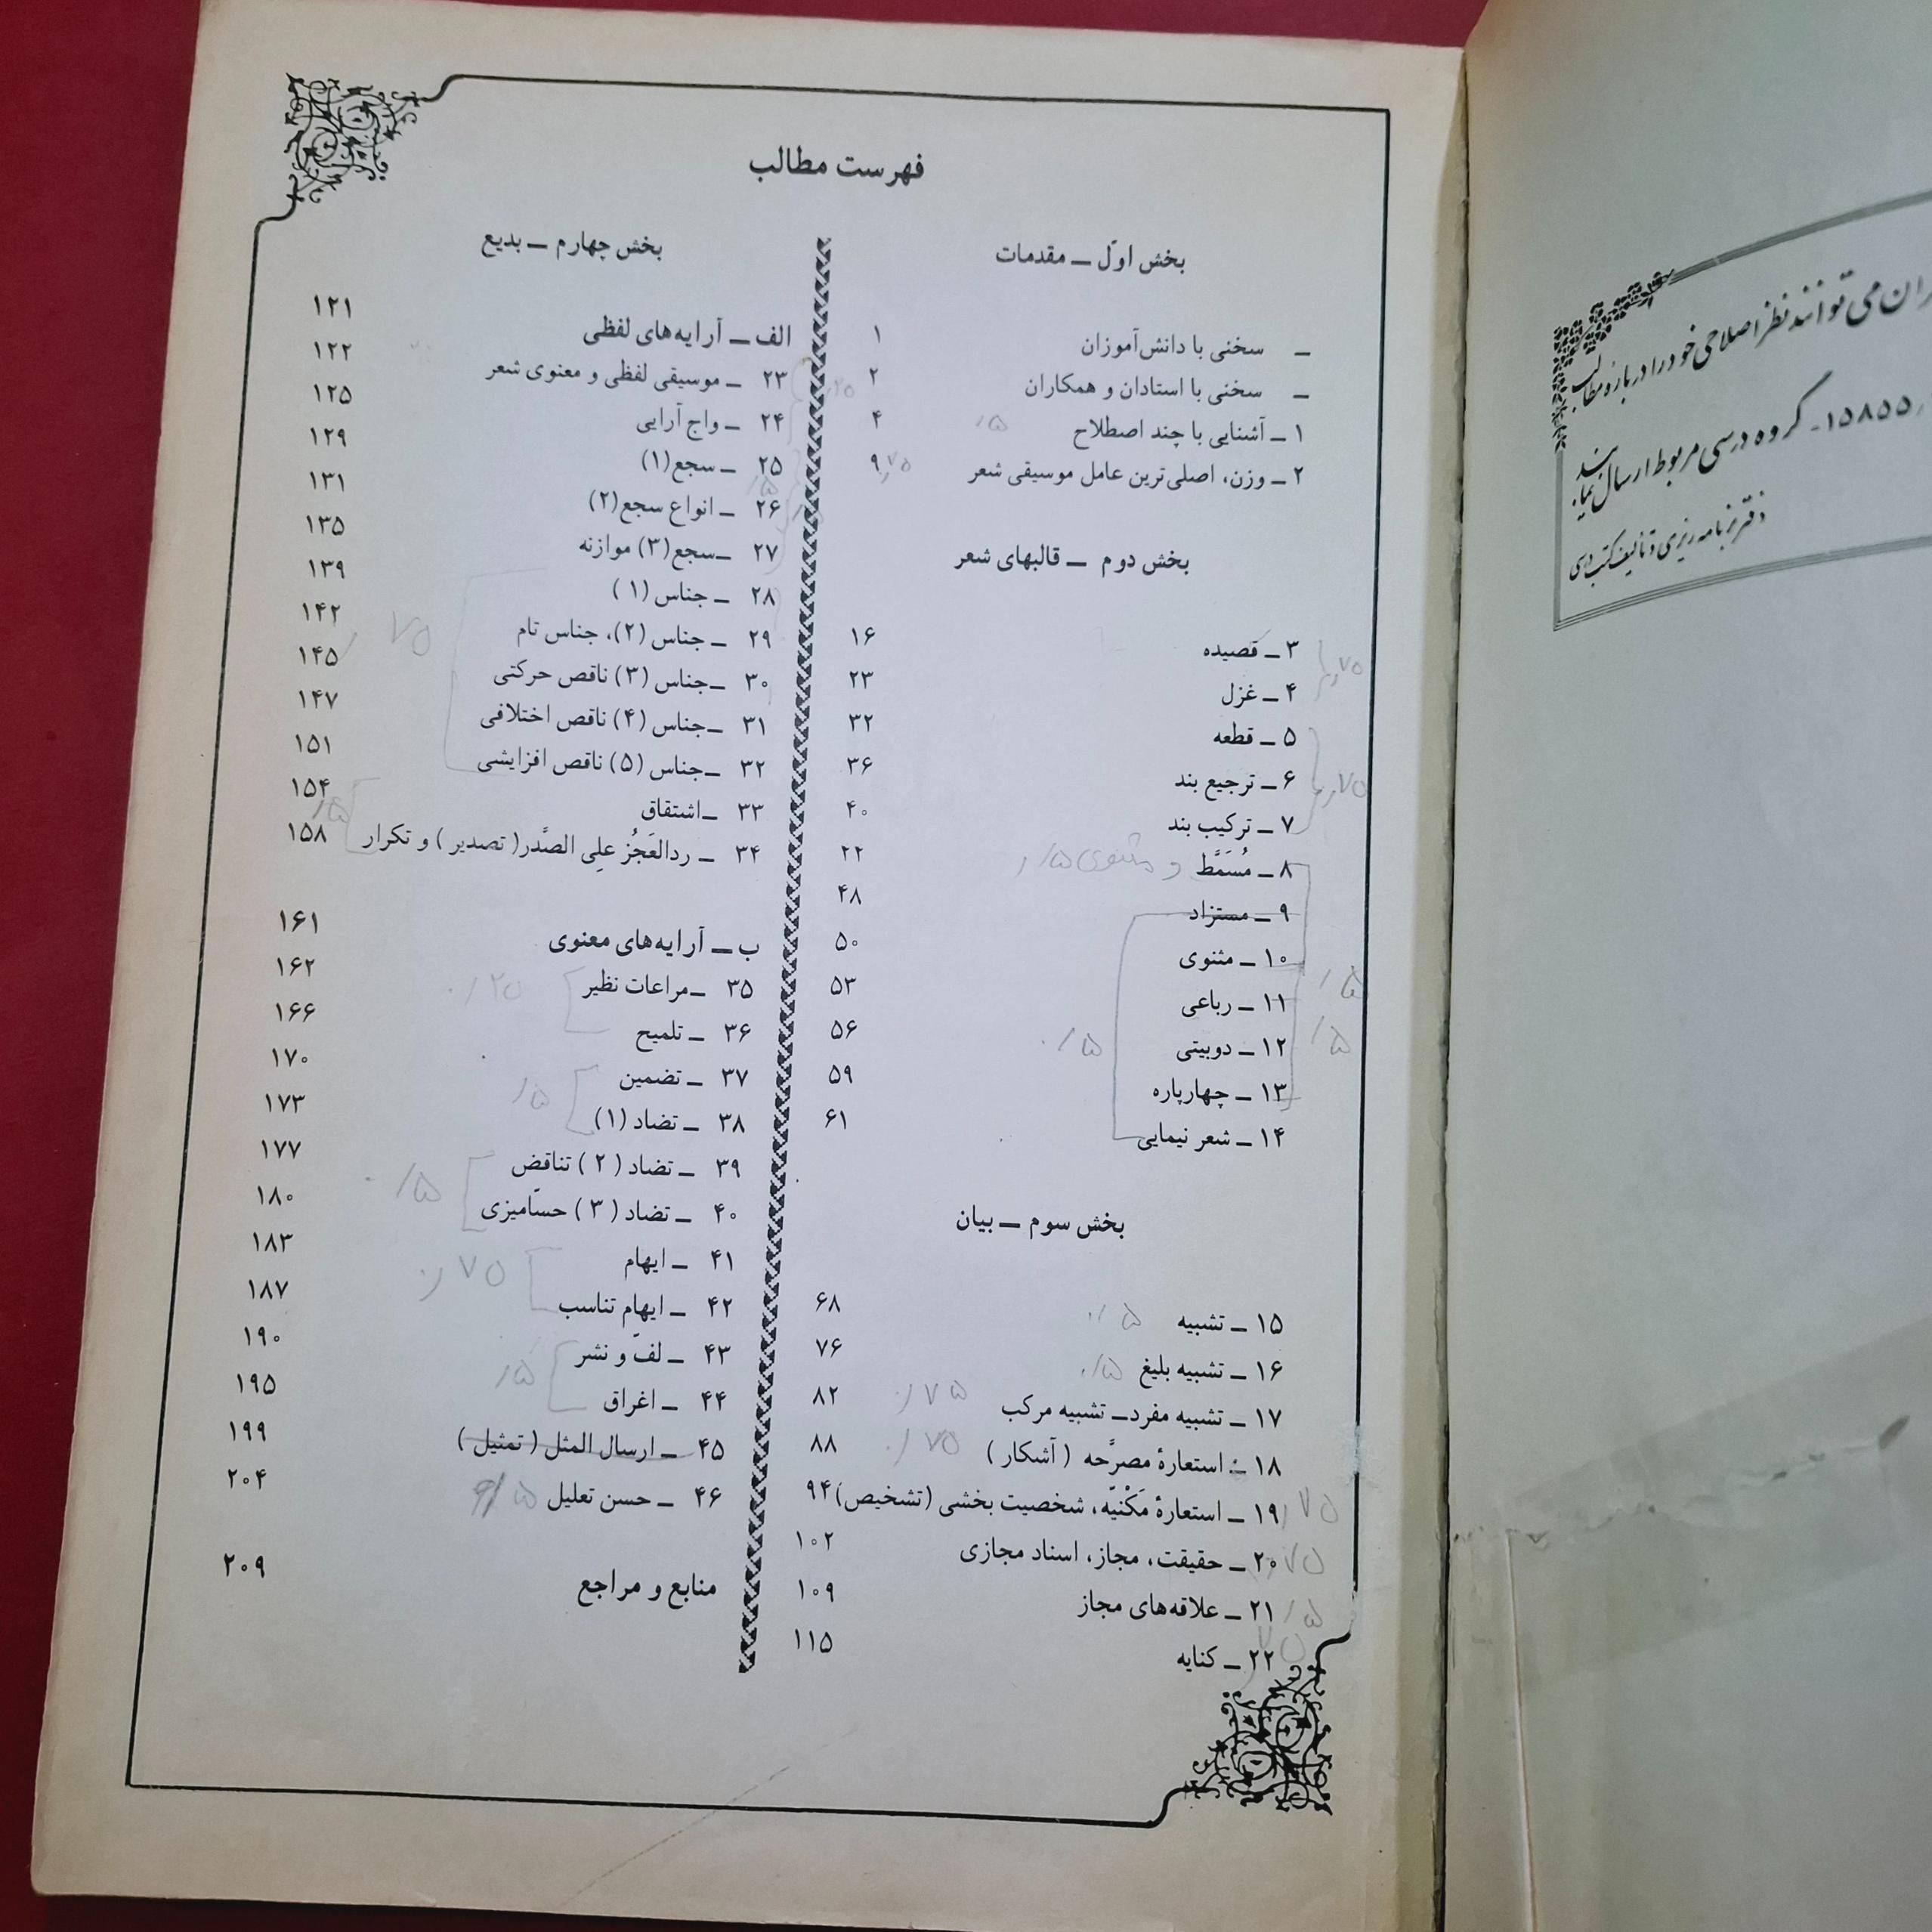 فهرست مطالب
بخش اوّل ــ مقدمات
ــ سخنی با دانش‌آموزان ۱
ــ سخنی با استادان و همکاران ۲
۱ ــ آشنایی با چند اصطلاح ۴
۲ ــ وزن، اصلی‌ترین عامل موسیقی شعر ۹
بخش دوم ــ قالبهای شعر
۳ ــ قصیده ۱۶
۴ ــ غزل ۲۳
۵ ــ قطعه ۳۲
۶ ــ ترجیع بند ۳۶
۷ ــ ترکیب بند ۴۰
۸ ــ مُسَمَّط و مثنوی ۲۲
۹ ــ مستزاد ۴۸
۱۰ ــ مثنوی ۵۰
۱۱ ــ رباعی ۵۳
۱۲ ــ دوبیتی ۵۶
۱۳ ــ چهارپاره ۵۹
۱۴ ــ شعر نیمایی ۶۱
بخش سوم ــ بیان
۱۵ ــ تشبیه ۶۸
۱۶ ــ تشبیه بلیغ ۷۶
۱۷ ــ تشبیه مفرد ــ تشبیه مرکب ۸۲
۱۸ ــ استعارهٔ مصرَّحه (آشکار) ۸۸
۱۹ ــ استعارهٔ مَکْنیّه، شخصیت بخشی (تشخیص) ۹۴
۲۰ ــ حقیقت، مجاز، اسناد مجازی ۱۰۲
۲۱ ــ علاقه‌های مجاز ۱۰۹
۲۲ ــ کنایه ۱۱۵
بخش چهارم ــ بدیع
۱۲۱
الف ــ آرایه‌های لفظی ۱۲۲
۲۳ ــ موسیقی لفظی و معنوی شعر ۱۲۵
۲۴ ــ واج آرایی ۱۲۹
۲۵ ــ سجع (۱) ۱۳۱
۲۶ ــ انواع سجع (۲) ۱۳۵
۲۷ ــ سجع (۳) موازنه ۱۳۹
۲۸ ــ جناس (۱) ۱۴۲
۲۹ ــ جناس (۲)، جناس تام ۱۴۵
۳۰ ــ جناس (۳) ناقص حرکتی ۱۴۷
۳۱ ــ جناس (۴) ناقص اختلافی ۱۵۱
۳۲ ــ جناس (۵) ناقص افزایشی ۱۵۴
۳۳ ــ اشتقاق ۱۵۸
۳۴ ــ ردالعَجُز علی الصَّدر (تصدیر) و تکرار
۱۶۱
ب ــ آرایه‌های معنوی ۱۶۲
۳۵ ــ مراعات نظیر ۱۶۶
۳۶ ــ تلمیح ۱۷۰
۳۷ ــ تضمین ۱۷۳
۳۸ ــ تضاد (۱) ۱۷۷
۳۹ ــ تضاد (۲) تناقض ۱۸۰
۴۰ ــ تضاد (۳) حسّامیزی ۱۸۳
۴۱ ــ ایهام ۱۸۷
۴۲ ــ ایهام تناسب ۱۹۰
۴۳ ــ لفّ و نشر ۱۹۵
۴۴ ــ اغراق ۱۹۹
۴۵ ــ ارسال المثل (تمثیل) ۲۰۴
۴۶ ــ حسن تعلیل
منابع و مراجع ۲۰۹
می‌توانند نظر اصلاحی خود را درباره مطالب
۱۵۸۵۵ ــ گروه درسی مربوط ارسال نمایند
دفتر برنامه‌ریزی و تألیف کتب درسی